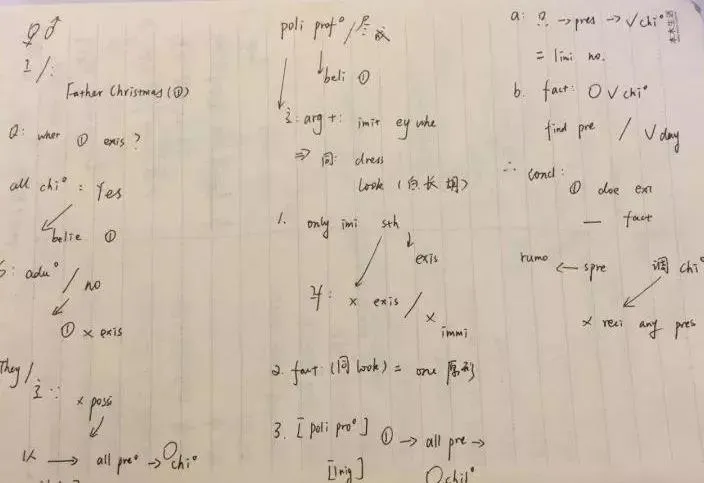 ♀♂
主/:
Father Christmas (①)
Q: wher ① exis?
all chi° : Yes
belie ①
: adu° / no
① × exis
They /
主 ∵ × possi
1人 → all pre° → ○chi°
poli prof° /
↓beli ①
主: arg +: imit ey whe
⇒ 同: dress
look (白长胡)
1. only imi sth
exis
× exis /
× immi
2. fact: (同 look) = one 原形
3. [poli pro°] ① → all pre →
[Inig] ○chil°
a: → pres → √chi°
= limi no.
b. fact: ○√chi°
find pre / √day
∴ concl:
① doe exi
— fact
rumo ← spre 调 chi°
× reci any pres